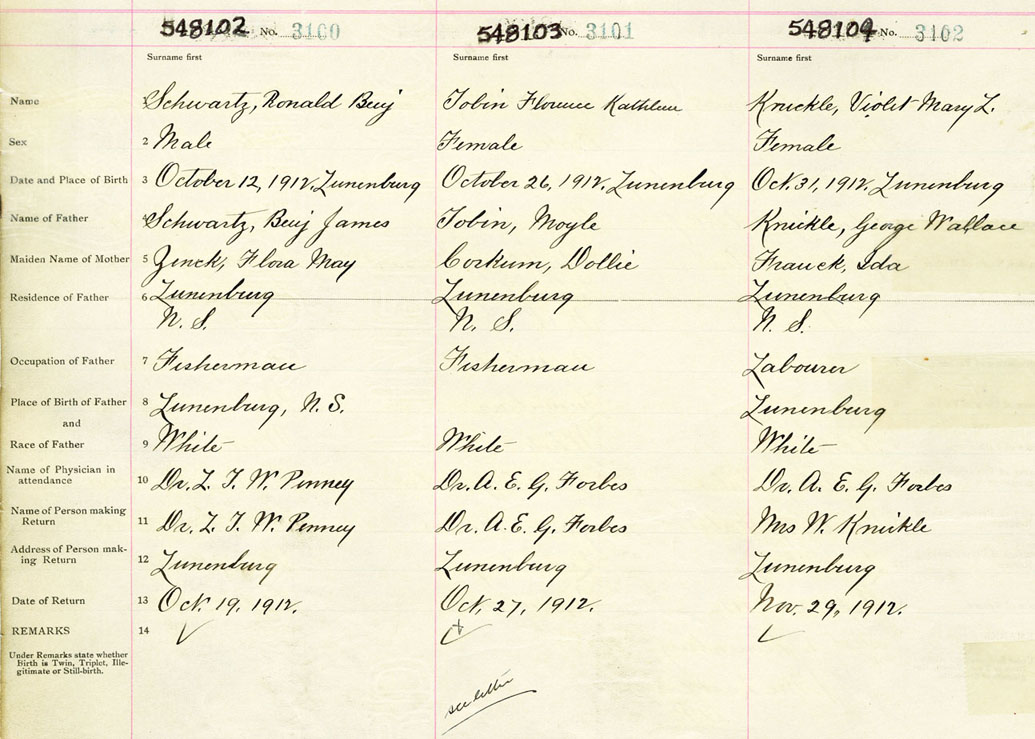 548102 No. 3100 548103 No. 3101 548104 No. 3102
Surname first Surname first Surname first
Name 1 Schwartz, Ronald Benj Tobin Florence Kathleen Knickle, Violet Mary L.
Sex 2 Male Female Female
Date and Place of Birth 3 October 12, 1912, Lunenburg October 26, 1912, Lunenburg Oct. 31, 1912, Lunenburg
Name of Father 4 Schwartz, Benj James Tobin, Moyle Knickle, George Wallace
Maiden Name of Mother 5 Zinck, Flora May Corkum, Dollie Franck, Ida
Residence of Father 6 Lunenburg Lunenburg Lunenburg
N. S. N. S. N. S.
Occupation of Father 7 Fisherman Fisherman Labourer
Place of Birth of Father 8 Lunenburg, N. S. Lunenburg
and
Race of Father 9 White White White
Name of Physician in
attendance 10 Dr. L. T. W. Penney Dr. A. E. G. Forbes Dr. A. E. G. Forbes
Name of Person making
Return 11 Dr. L. T. W. Penney Dr. A. E. G. Forbes Mrs W. Knickle
Address of Person mak-
ing Return 12 Lunenburg Lunenburg Lunenburg
Date of Return 13 Oct. 19, 1912. Oct. 27, 1912. Nov. 29, 1912.
REMARKS 14
Under Remarks state whether
Birth is Twin, Triplet, Ille-
gitimate or Still-birth.
see letter